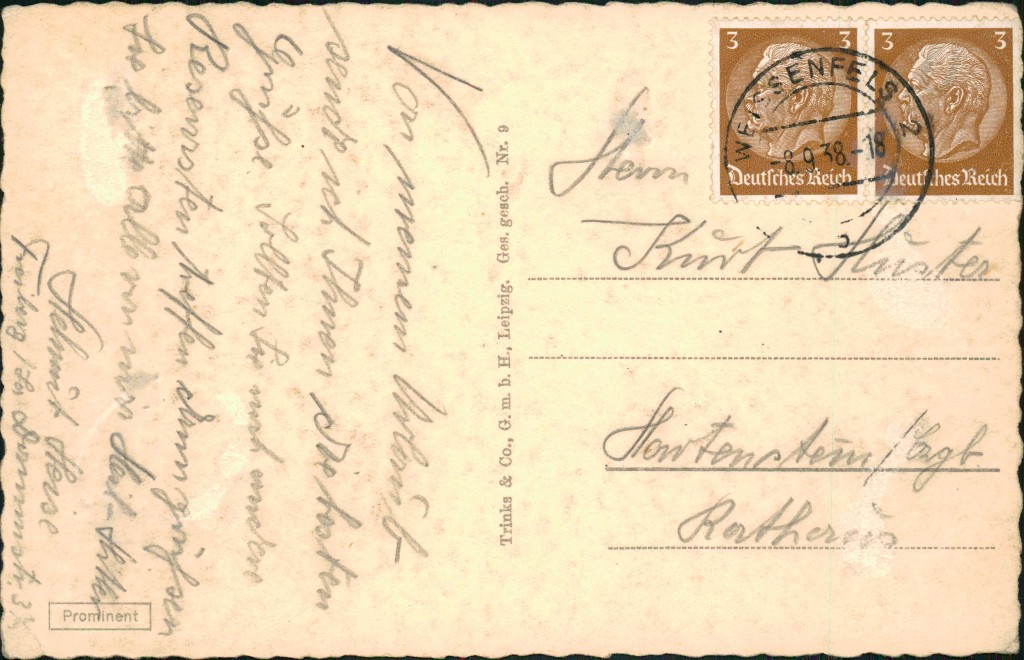 Von meinem Urlaub
sende ich Ihnen die besten
Grüße. Sollten Sie mal unsere
treffen dann grüßen
Sie bitte alle von mir. Heil-Hitler
Helmut Heise
Freiberg /Sa
Prominent
Trinks & Co., G. m. b. H., Leipzig. Ges. gesch. Nr. 9
3 3
Deutsches Reich
3 3
Deutsches Reich
WEISSENFELS 2
-8.9.38.-18
Herrn
Kurt Huster
Hartenstein/Erzgb
Rathaus